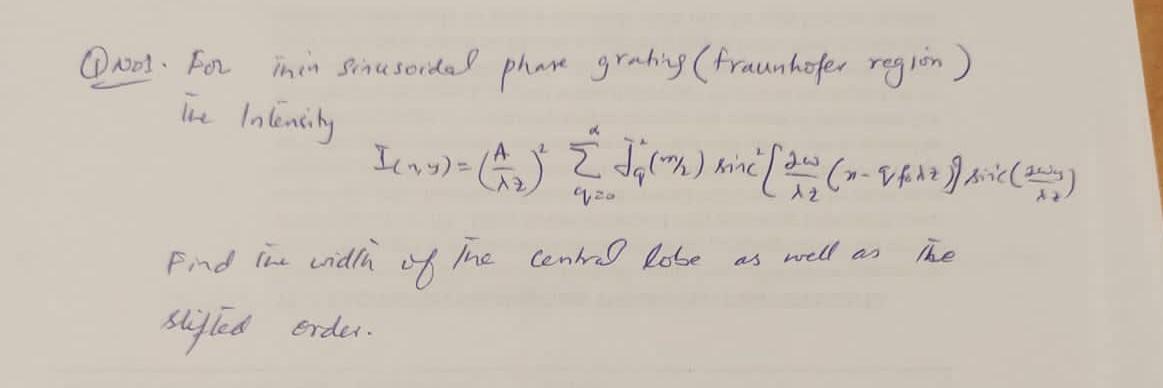 Q No 1. For thin sinusoidal phase grating (fraunhofer region)
The Intensity
I(x,y) = (A/λz)² Σ_{q=0}^{α} J_q²(m/2) sinc²[2w/λz (x - q f₀ λz)] sinc(2wy/λz)
Find the width of the central lobe as well as the
shifted order.